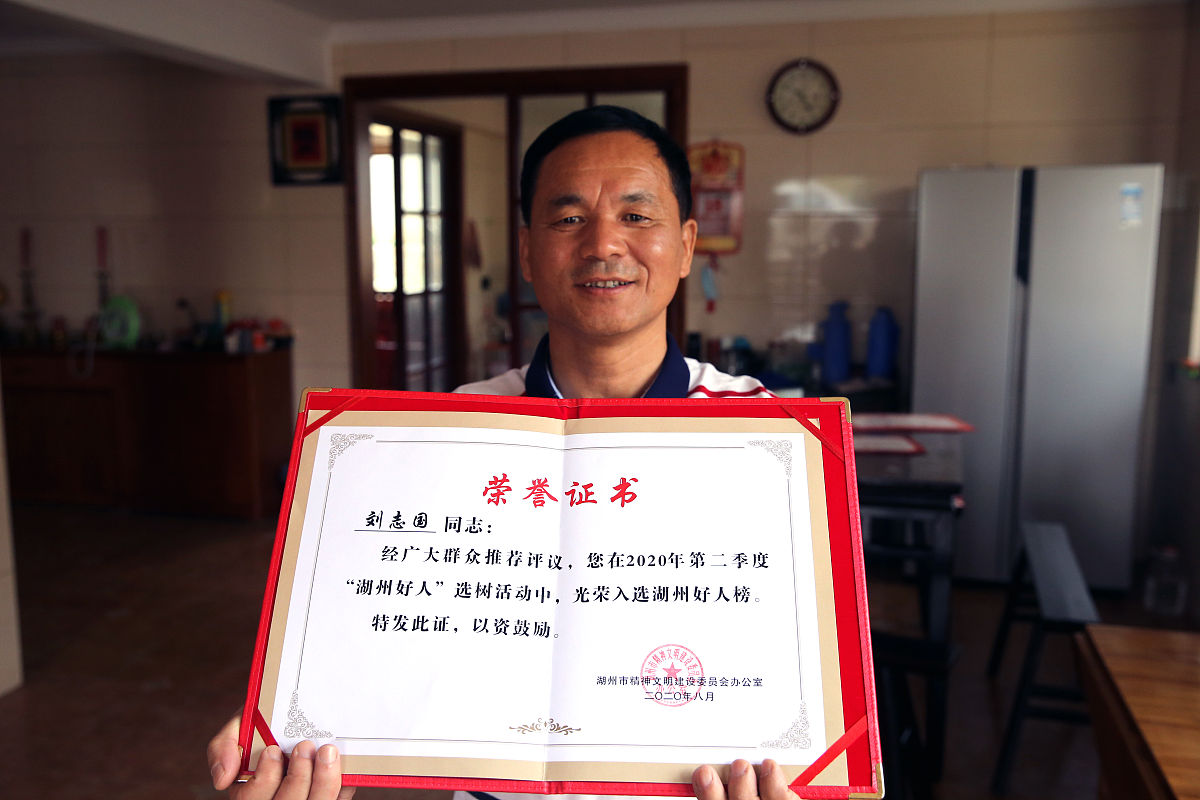 荣誉证书
刘志国 同志：
经广大群众推荐评议，您在2020年第二季度
“湖州好人”选树活动中，光荣入选湖州好人榜。
特发此证，以资鼓励。
湖州市精神文明建设委员会办公室
二〇二〇年八月